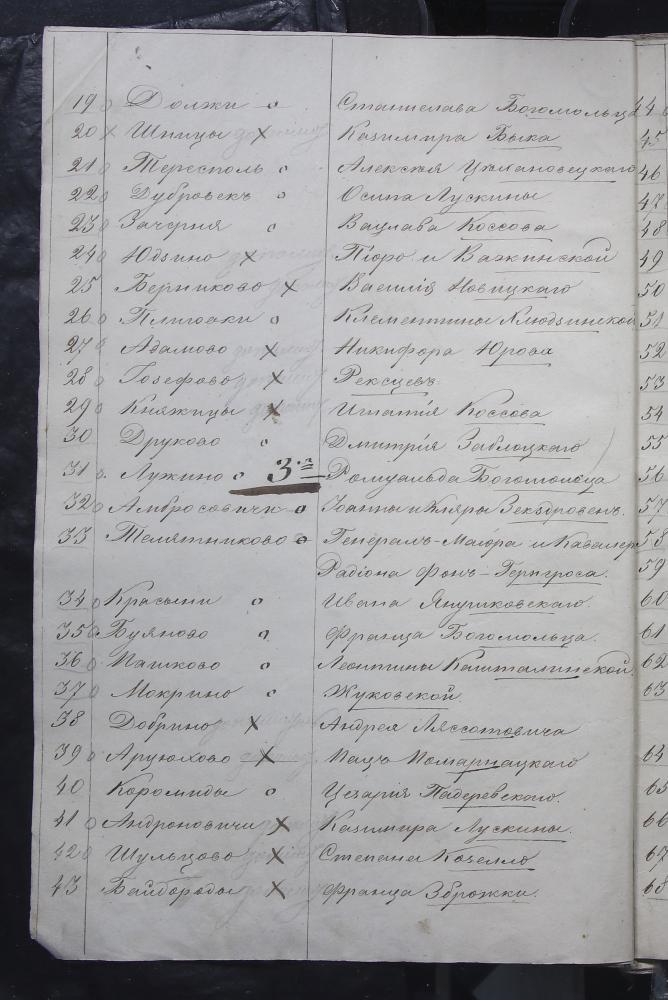 19 о Должи о Станислава Богомольца 44
20 х Шпицы х Казимира Быка 45
21 о Тересполь о Алексѣя Цѣхановецкаго 46
22 о Дубровекъ о Осипа Лускины 47
23 о Зачерня о Вацлава Коссова 48
24 о Юдзино х Піоро и Важинской 49
25 Берниково х Василія Новицкаго 50
26 о Плиговки о Клементины Клюдзинской 51
27 Адамово х Никифора Юрова 52
28 о Іозефово х 53
29 о Княжицы х Игнатія Коссова 54
30 Друково о Дмитрія Заблоцкаго 55
31 о Лужино о 3. Ромуальда Богомольца 56
32 о Амбросовичи о Іоанны и Кляры 57
33 Темятниково о Генералъ-Маіора и Кавалера 58
Радіона Фонъ-Гернгроса. 59
34 о Красыни о Ивана Янушковскаго. 60
35 о Буяново о Франца Богомольца. 61
36 о Пашково о Леонтины Кашталинской. 62
37 о Мокрино о Жуковской. 63
38 Добрино х Андрея Ляссотовича
39 о х Пацъ Помарнацкаго 64
40 Коромиды о Цезарія Падеревскаго. 65
41 о Андроновичи х Казимира Лускины. 66
42 о Шульцово х Степана Кочелло 67
43 Байдороды х Франца Зброжки. 68